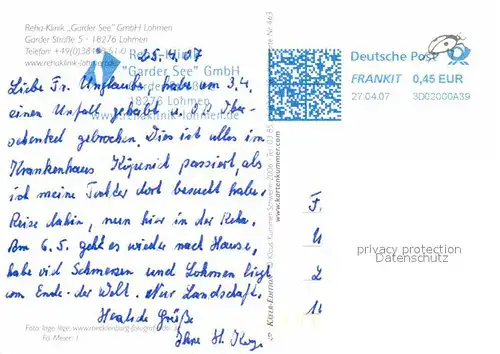 Reha-Klinik „Garder See" GmbH Lohmen
Garder Straße 5 · 18276 Lohmen
Telefon: +49(0)38
www.rehaklinik-lohmen
25.4.07
Reha-Klinik
"Garder See" GmbH
18276 Lohmen
www.rehaklinik-lohmen.de
Liebe Fr. habe am 3.4.
einen Unfall gehabt u. Ober-
schenkel gebrochen. Dies ist alles im
Krankenhaus Köpenick passiert, als
ich meine Tochter dort besucht habe.
Reise dahin, nun hier in der Reha.
Am 6.5. geht es wieder nach Hause,
habe viel Schmerzen und Lohmen liegt
am Ende der Welt. Nur Landschaft.
Herzliche Grüße
Ihre H.
Foto: Inge Jlge, www.mecklenburg-fotografie.de
Fa. Meier 1
www.kartenkummer.com
Deutsche Post
FRANKIT 0,45 EUR
27.04.07 3D02000A39
F.
U
L
privacy protection
Datenschutz